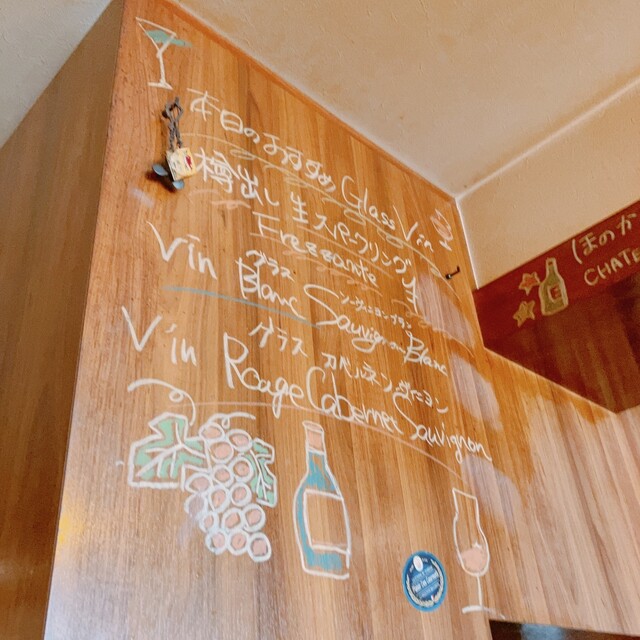 本日のおすすめ Glass Vin
樽出し 生スパークリング
Fressante
グラス ソーヴィニヨン・ブラン
Vin Blanc Sauvignon Blanc
グラス カベルネソーヴィニヨン
Vin Rouge Cabernet Sauvignon
ほのか
CHATE